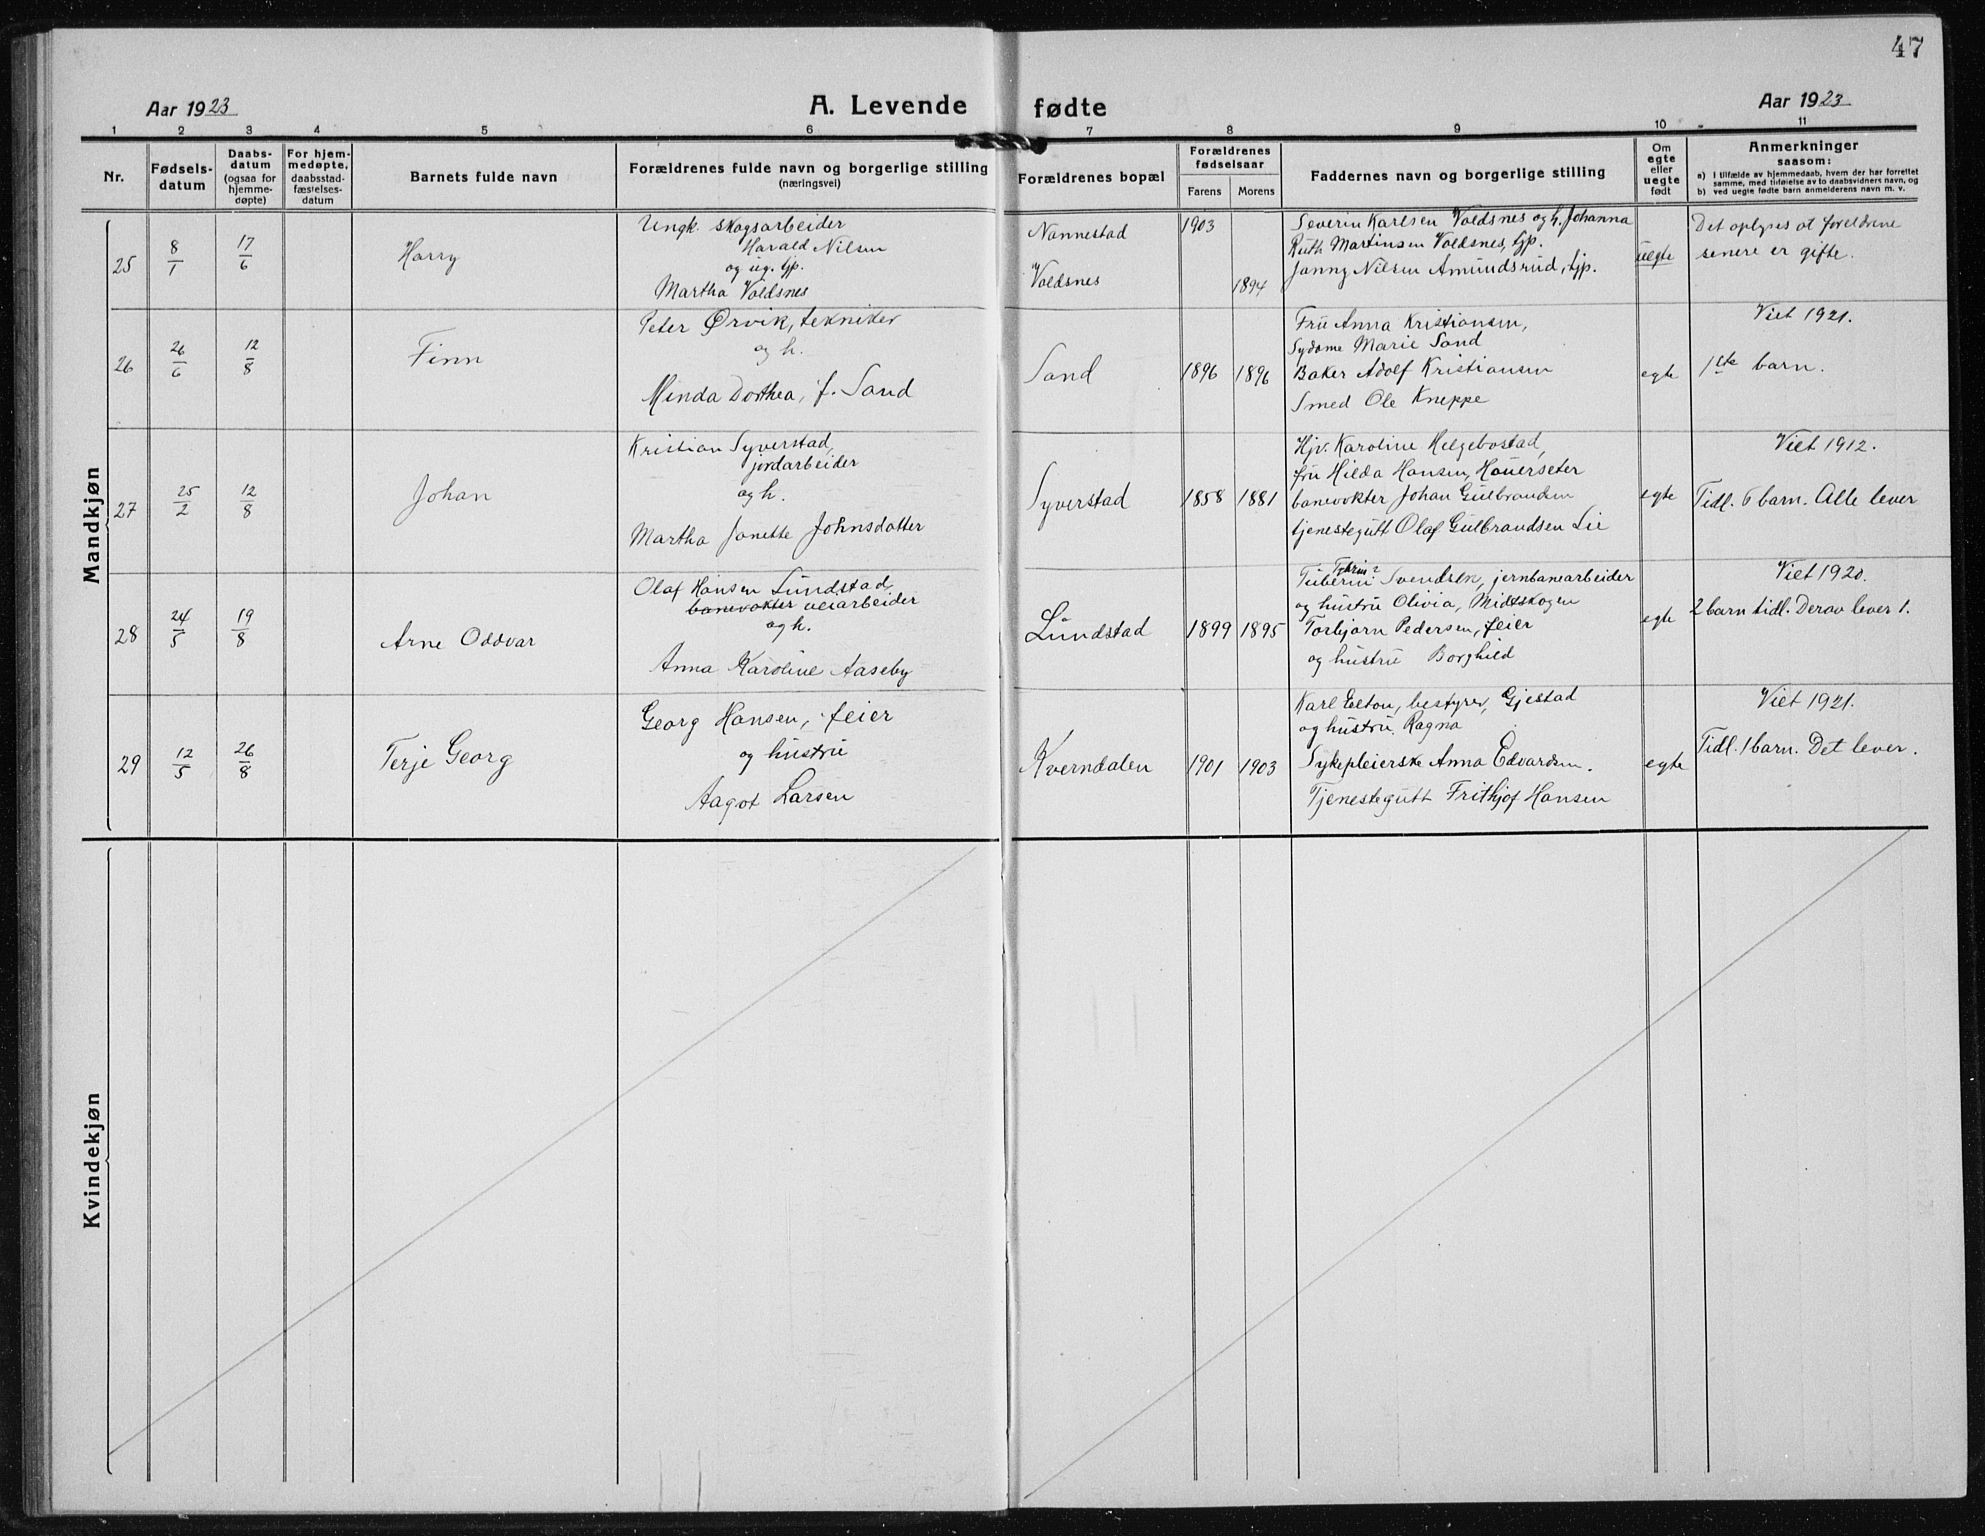 47
Aar 1923
A. Levende fødte
Aar 1923
1 2 3 4 5 6 7 8 9 10 11
Nr.
Fødsels-
datum
Daabs-
datum
(ogsaa for
hjemme-
døpte)
For hjem-
medøpte,
daabsstad-
fæstelses-
datum
Barnets fulde navn
Forældrenes fulde navn og borgerlige stilling
(næringsvei)
Forældrenes bopæl
Forældrenes
fødselsaar
Farens Morens
Faddernes navn og borgerlige stilling
Om
egte
eller
uegte
født
Anmerkninger
saasom:
a) I tilfælde av hjemmedaab, hvem der har forrettet
samme, med tilføielse av to daabsvidners navn, og
b) ved uegte fødte barn anmelderens navn m. v.
Mandkjøn
25
8/1
17/6
Harry
Ungk. skogsarbeider
Harald Nilsen
og ug. tjp.
Martha Voldsnes
Nannestad
Voldsnes
1903
1894
Severin Karlsen Voldsnes og h. Johanna
Ruth Martinsen Voldsnes, tjp.
Janny Nilsen Amundsrud, tjp.
uegte
Det oplyses at foreldrene
senere er gifte.
26
26/6
12/8
Finn
Peter Ørvik, tekniker
og h.
Minda Dorthea, f. Sand
Sand
1896 1896
Fru Anna Kristiansen,
Sydame Marie Sand
Baker Adolf Kristiansen
Smed Ole Kneppe
egte
Viet 1921.
1ste barn.
27
25/2
12/8
Johan
Kristian Syverstad,
jordarbeider
og h.
Martha Janette Johnsdatter
Syverstad
1858 1881
Hjv. Karoline Helgebostad,
fru Hilda Hansen, Hauerseter
banevokter Johan Gulbrandsen
tjenestegutt Olaf Gulbrandsen Lie
egte
Viet 1912.
Tidl. 6 barn. Alle lever
28
24/5
19/8
Arne Oddvar
Olaf Hansen Lundstad,
banevokter veiarbeider
og h.
Anna Karoline Aaseby
Lundstad
1899 1895
Svendsen, jernbanearbeider
og hustru Olivia, Midtskogen
Torbjørn Pedersen, feier
og hustru Borghild
egte
Viet 1920.
2 barn tidl. Derav lever 1.
29
12/5
26/8
Terje Georg
Georg Hansen, feier
og hustru
Aagot Larsen
Kverndalen
1901 1903
Karl Eeton, bestyrer, Gjestad
og hustru Ragna
Sykepleierske Anna Edvardsen.
Tjenestegutt Frithjof Hansen
egte
Viet 1921.
Tidl. 1 barn. Det lever.
Kvindekjøn